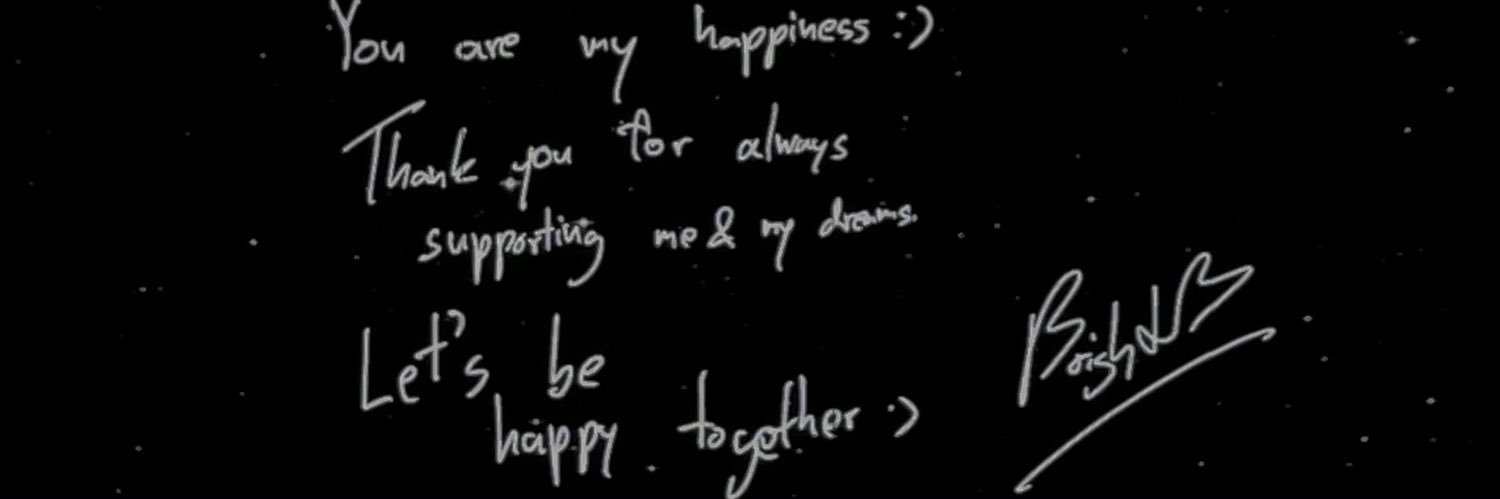 You are my happiness :)
Thank you for always
supporting me & my dreams.
Let's be
happy together :)
Bright